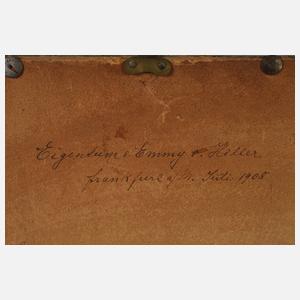 Eigentum v Emmy v. Heller
Frankfurt a/M. Juli 1908